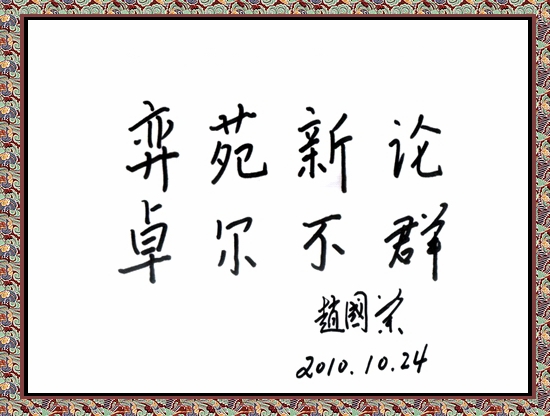 弈苑新论
卓尔不群
趙國荣
2010.10.24